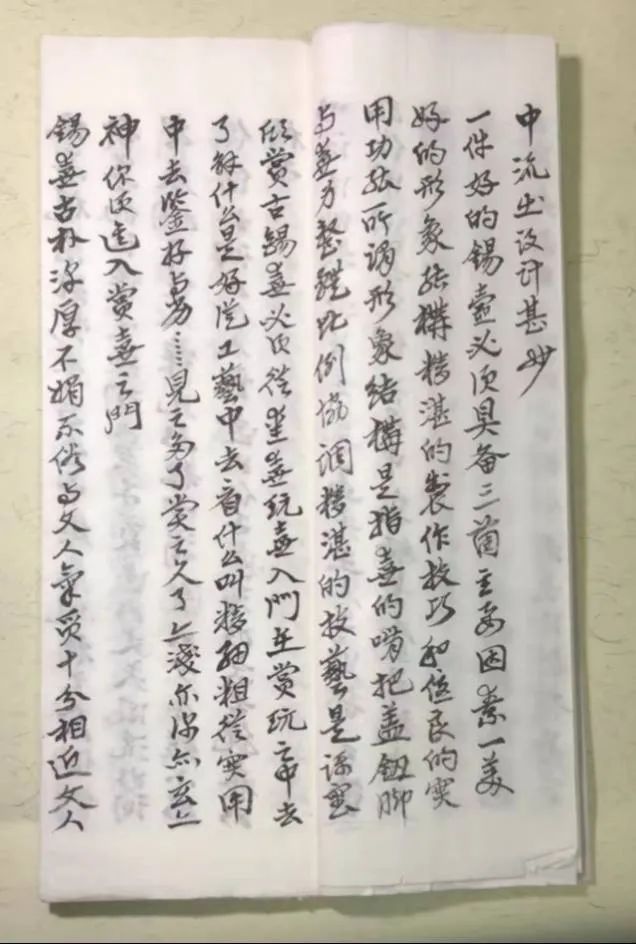 中流出设计甚妙
一件好的锡壶必须具备三箇主要因素一美
好的形象结構精湛的製作技巧和优良的実
用功能所谓形象结構是指壶的嘴把盖钮脚
与壶身整體比例協调精湛的技藝是评壶
欣赏古锡壶必须從坐壶玩壶入門在赏玩之中去
了解什么是好從工藝中去看什么叫精细粗從実用
中去鉴好与劣……見之多了赏之久了上淺亦深亦玄亦
神你便進入赏壶之門
锡壶古朴浑厚不媚不俗与文人氣質十分相近文人